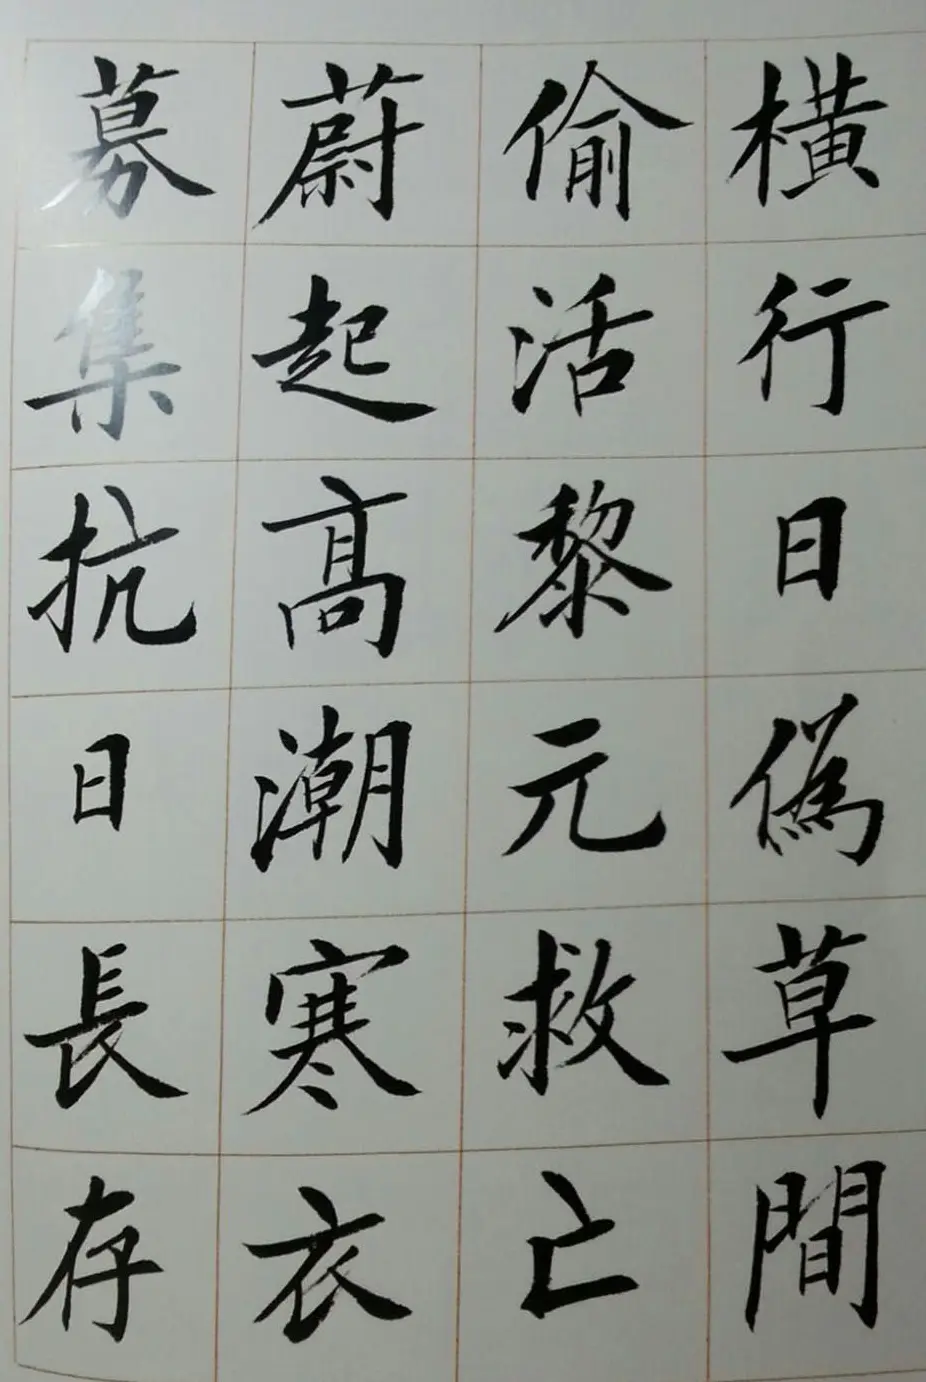 橫行日偽草間
偷活黎元救亡
蔚起高潮寒衣
募集抗日長存